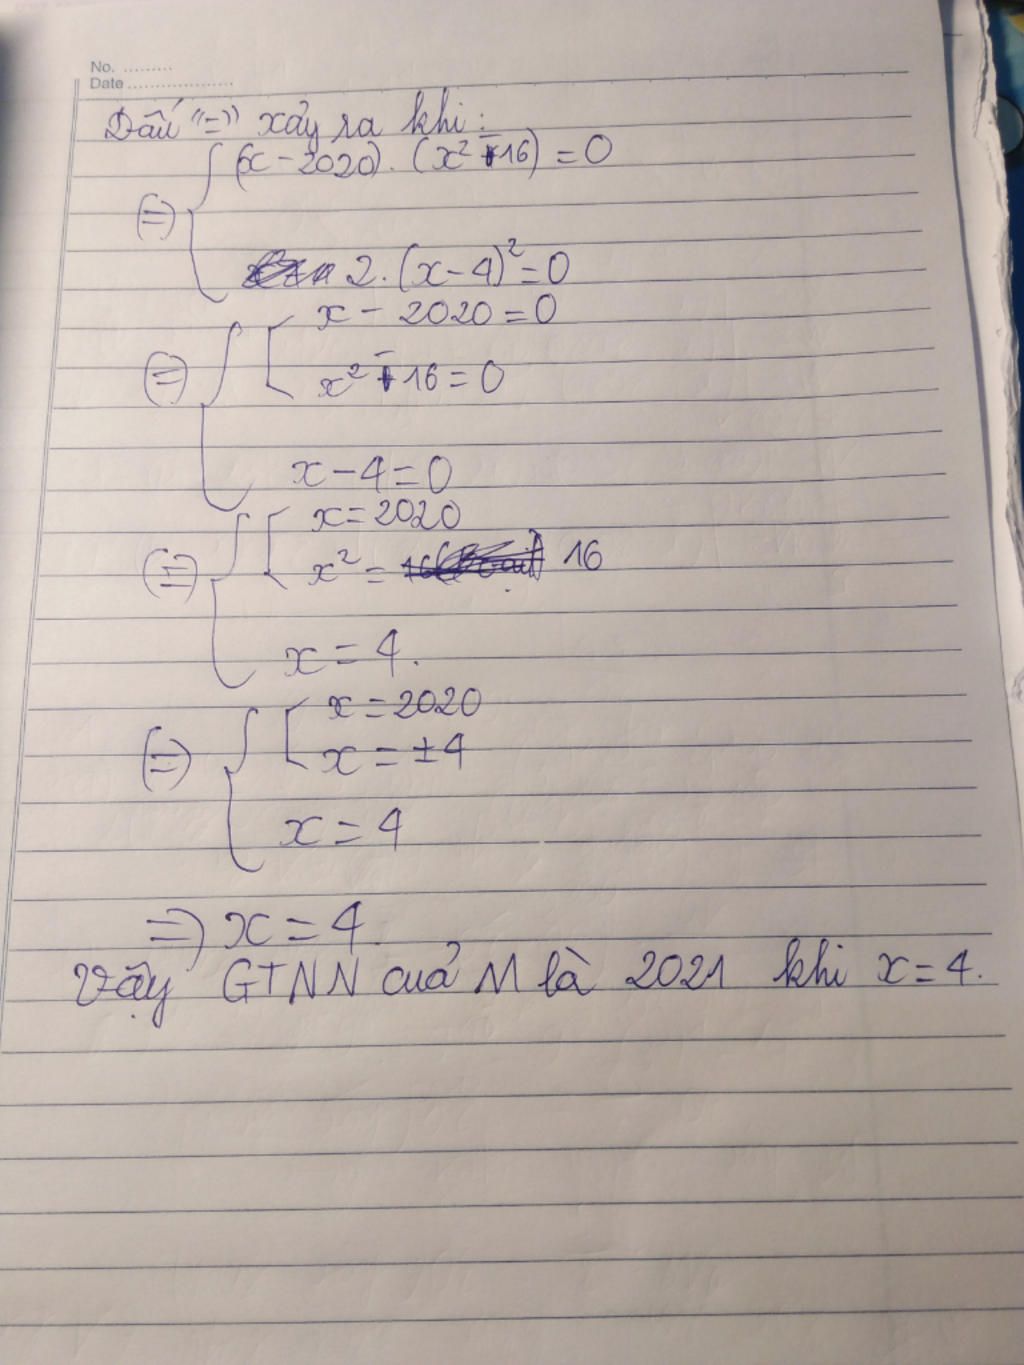 No. .........
Date ....................
Dấu "=" xảy ra khi:
(x - 2020) . (x² - 16) = 0
(=)
2. (x - 4)² = 0
x - 2020 = 0
(=)
x² - 16 = 0
x - 4 = 0
x = 2020
(=)
x² = 16
x = 4.
x = 2020
(=)
x = ±4
x = 4
=) x = 4.
Vậy GTNN của M là 2021 khi x = 4.